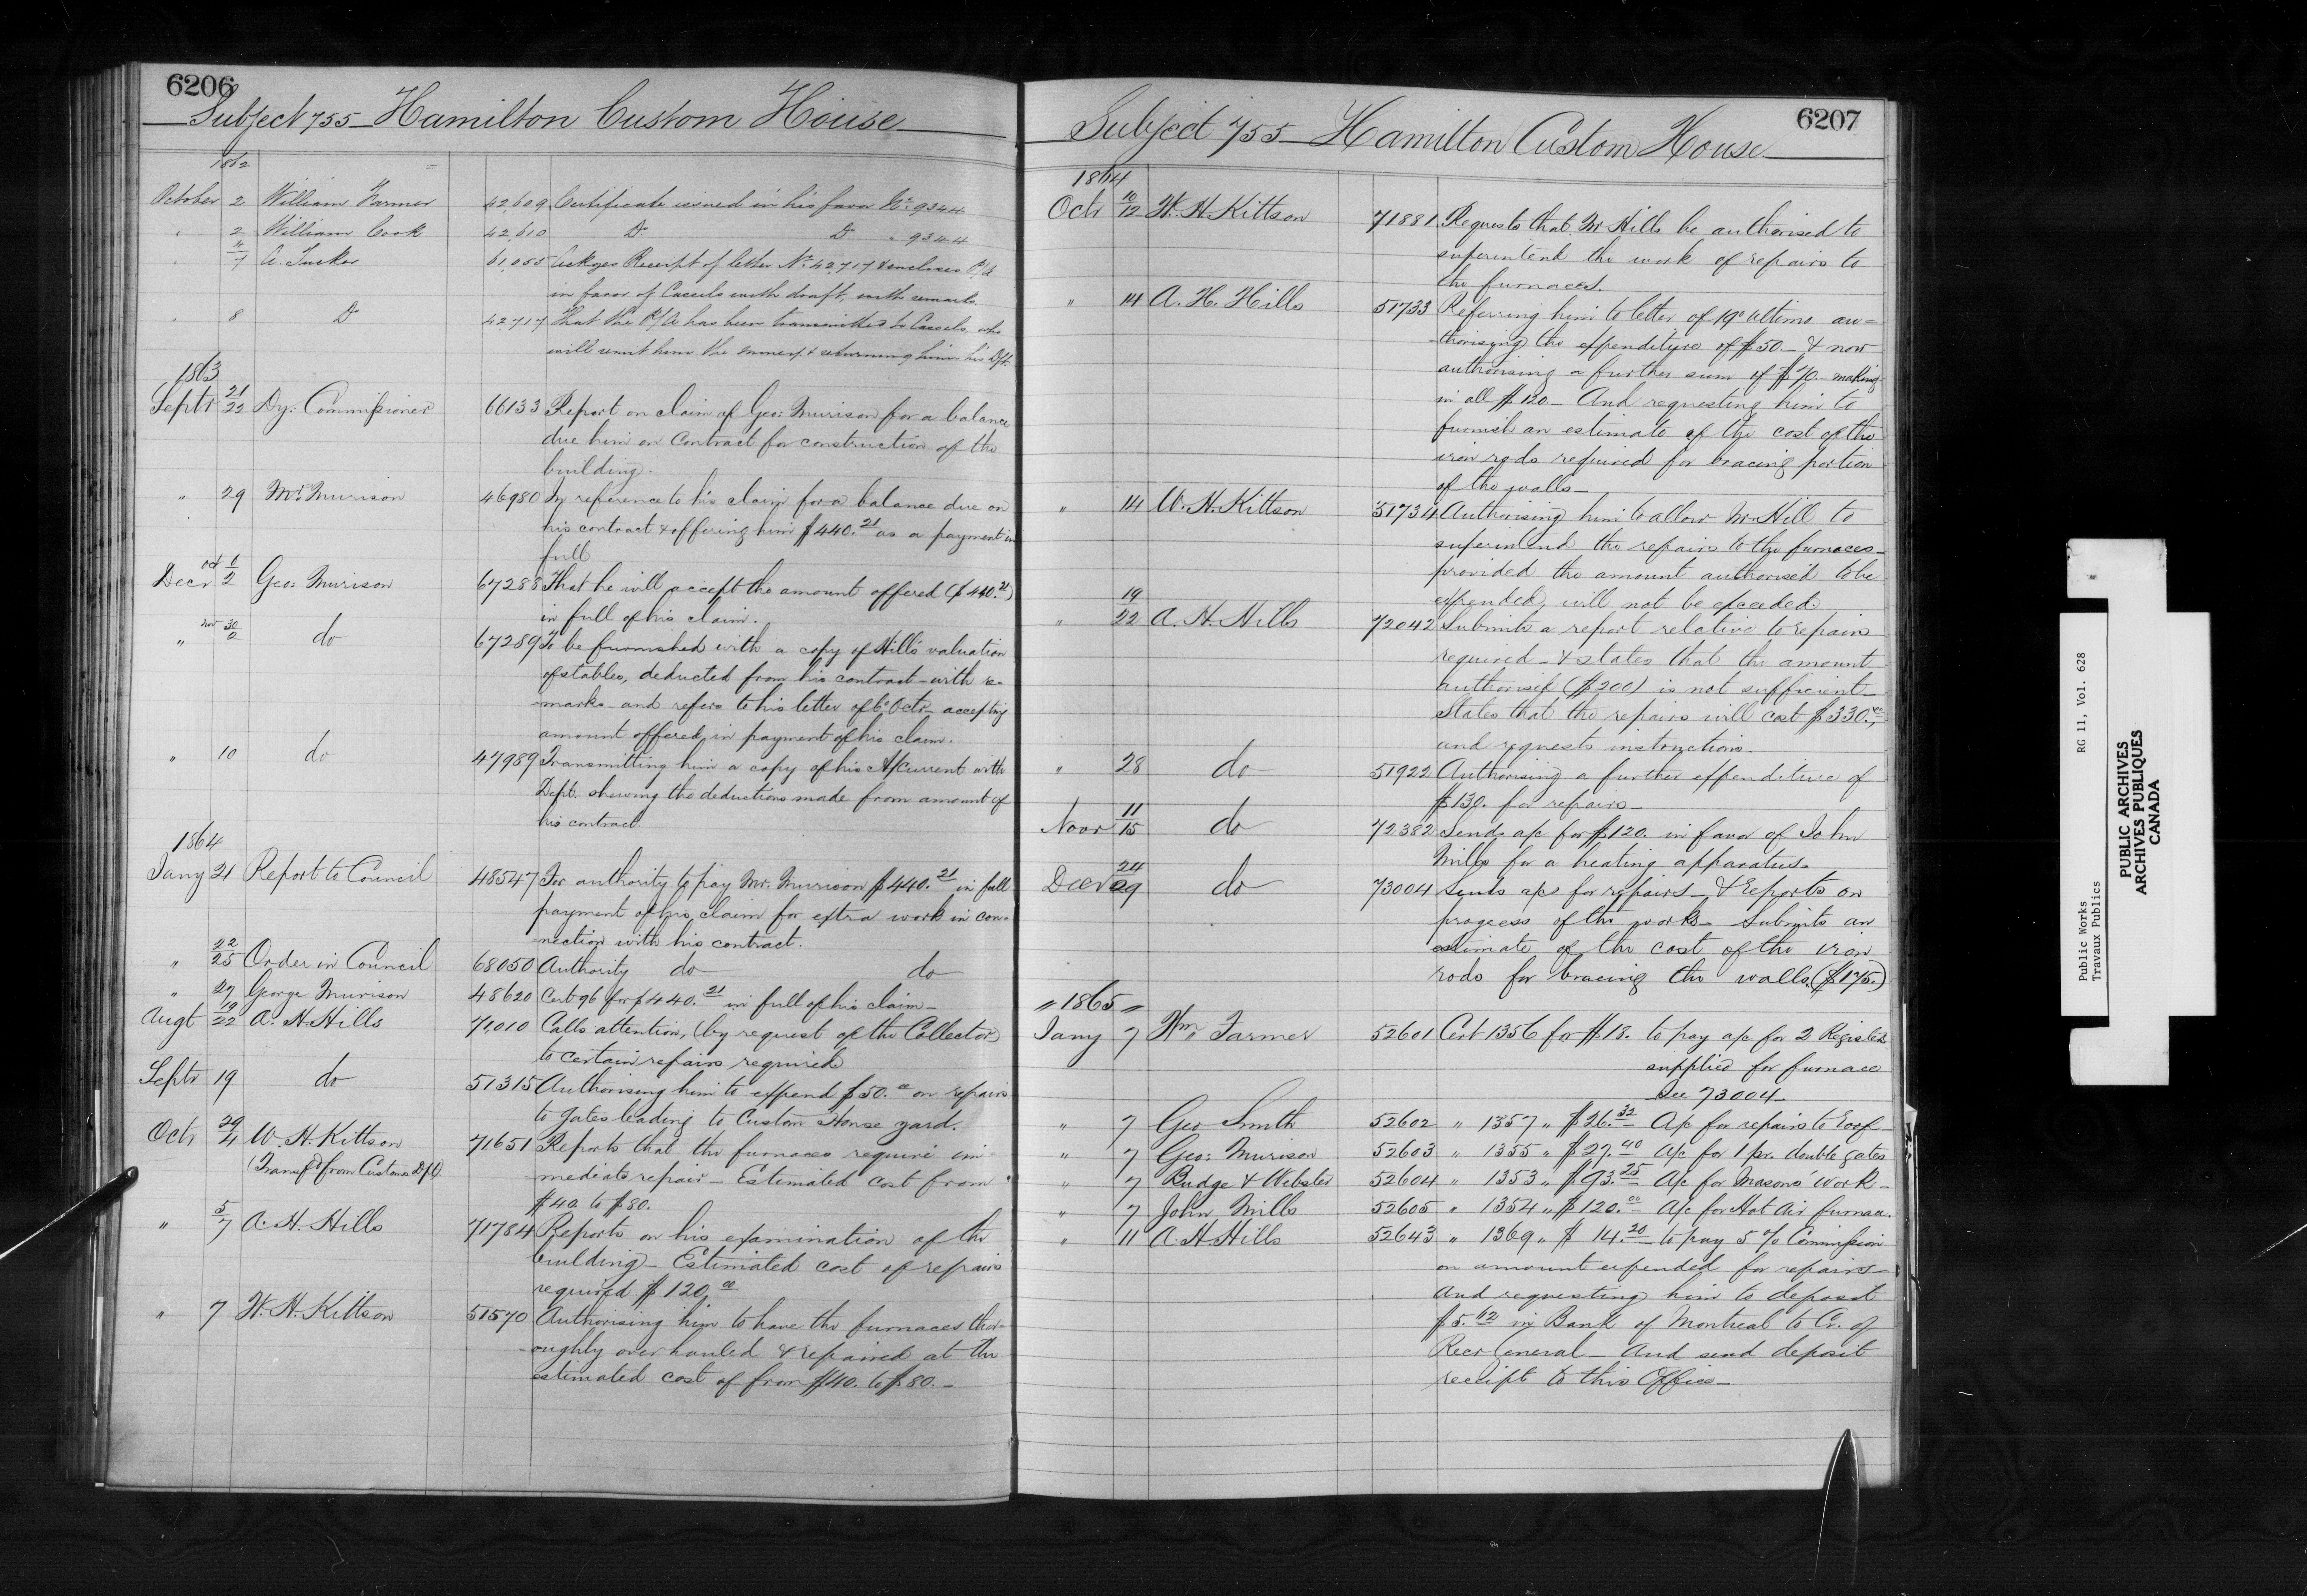 6206
Subject 755 Hamilton Custom House
1862
October 2 William Farmer 42,609 Certificate issued in his favor No. 9344
" 2 William Cook 42,610 Do Do " 9344
" 4/7 A. Tucker 61,055 Ackges Receipt of letter No. 42717 & encloses P/A
in favor of Cassels with draft, with remarks.
" 8 Do 42,717 That the P/A has been transmitted to Cassels, who
will remit him the money & returning him his Dft.
1863
Septr 21/22 Dy: Commissioner 66133 Report on claim of Geo: Murison for a balance
due him on Contract for construction of the
building.
" 29 Mr. Murison 46980 In reference to his claim for a balance due on
his contract & offering him $440.21 as a payment in
full
Decr Oct 1/2 Geo: Murison 67288 That he will accept the amount offered ($440.21)
in full of his claim.
" Nov 30/2 do 67289 To be furnished with a copy of Hills valuation
of stables, deducted from his contract - with re-
marks - and refers to his letter of 6th Octr - accepting
amount offered in payment of his claim.
" 10 do 47989 Transmitting him a copy of his A/Current with
Dept. shewing the deductions made from amount of
his contract
1864
Jany 21 Report to Council 48547 For authority to pay Mr. Murison $440.21 in full
payment of his claim for extra work in con-
nection with his contract.
" 22/25 Order in Council 68050 Authority do do
" 27 George Murison 48620 Cert 96 for $440.21 in full of his claim -
Augt 19/22 A. H. Hills 71,010 Calls attention, (by request of the Collector)
to certain repairs required
Septr 19 do 51315 Authorising him to expend $50.00 on repairs
to gates leading to Custom House yard.
Octr 29/4 W. H. Kittson 71651 Reports that the furnaces require im-
(Transfd from Customs Dpt) mediate repair - Estimated cost from
$40. to $80.
" 5/7 A. H. Hills 71784 Reports on his examination of the
building - Estimated cost of repairs
required $120.00
" 7 W. H. Kittson 51570 Authorising him to have the furnaces thor-
oughly overhauled & repaired at the
estimated cost of from $40. to $80. -
6207
Subject 755 - Hamilton Custom House
1864
Octr 10/12 W. H. Kittson 71881 Requests that Mr Hills be authorised to
superintend the work of repairs to
the furnaces.
" 14 A. H. Hills 51733 Referring him to letter of 19th ultimo au=
thorising the expenditure of $50 - & now
authorising a further sum of $70 - making
in all $120 - And requesting him to
furnish an estimate of the cost of the
iron rods required for bracing portion
of the walls -
" 14 W. H. Kittson 51734 Authorising him to allow Mr. Hill to
superintend the repairs to the furnaces -
provided the amount authorised to be
expended, will not be exceeded
" 19/22 A. H. Hills 72042 Submits a report relative to repairs
required - & states that the amount
authorised ($200) is not sufficient -
States that the repairs will cost $330.00,
and requests instructions.
" 28 do 51922 Authorising a further expenditure of
$130. for repairs -
Novr 11/15 do 72382 Sends a/c for $120. in favor of John
Mills for a heating apparatus.
Decr 24/29 do 73004 Sends a/c for repairs - & Reports on
progress of the works - Submits an
estimate of the cost of the iron
rods for bracing the walls. ($175.)
" 1865 "
Jany 7 Wm Farmer 52601 Cert 1356 for $18. to pay a/c for 2 Registers
supplied for furnace
See 73004
" 7 Geo Smith 52602 " 1357 " $26.32 A/c for repairs to roof -
" 7 Geo: Murison 52603 " 1355 " $27.40 a/c for 1 pr. double gates
" 7 Budge & Webster 52604 " 1353 " $93.25 A/c for Masons' Work -
" 7 John Mills 52605 " 1354 " $120.00 A/c for Hot Air furnace.
" 11 A H Hills 52643 " 1369 " $14.20 to pay 5 % Commission
on amount expended for repairs -
and requesting him to deposit
$5.62 in Bank of Montreal to Cr. of
Recr General - And send deposit
receipt to this Office -
Public Works RG 11, Vol. 628
Travaux Publics
PUBLIC ARCHIVES
ARCHIVES PUBLIQUES
CANADA